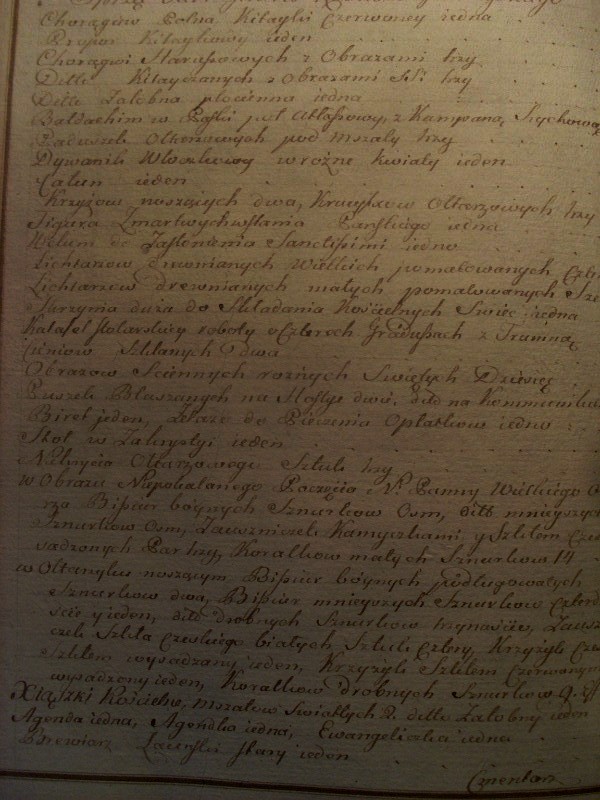 Chorągiew Polna Kitayki Czerwoney iedna
Propor Kitaykowy ieden
Chorągwi Staruszowych z Obrazami trzy
Ditto Kitayczanych z Obrazami trzy
Ditto Załobna płocienna iedna
Baldachim w Paski Atłasowy, z Kampaną Szychową
Poduszek Ołtarzowych pod Mszały trzy
Dywanik Włoczkowy w rozne kwiaty ieden
Całun ieden
Krzyżow noszących dwa, Krucyfixow Ołtarzowych trzy
Figura Zmartwychwstania Panskiego iedna
Welum do Zasłonienia Sanctissimi iedno
Lichtarzow drewnianych Wielkich pomalowanych
Lichtarzow drewnianych małych pomalowanych
Skrzynia duża do Składania Koscielnych Swiec iedna
Katafal Stolarskiey roboty o Czterech Gradusach z Trumną
Cieniow Szklanych dwa
Obrazow Sciennych roznych Swiętych Dziesięc
Puszek Blaszanych na Hostye dwie, ditto na Kommunikanty
Biret jeden, Żelazo do Pieczenia Opłatkow iedno
Stoł w Zakrystyi ieden
Nakrycia Ołtarzowego Sztuk trzy
W Obrazu Niepokalanego Poczęcia N. Panny Wielkiego
rza Bisiur boynych Sznurkow Osm, ditto mnieyszych
Sznurkow Osm, Zauszniczek Kamyczkami y Szkłem
sadzonych Par trzy, Koralikow małych Sznurkow 14
w Ołtarzyku noszącym Bisiur boynych podługowatych
Sznurkow dwa, Bisiur mnieyszych Sznurkow
scie y ieden, ditto drobnych Sznurkow trzynascie,
czek Szkła Czeskiego białych Sztuk Cztery, Krzyżyk
Szkłem wysadzany ieden, Krzyżyk Szkłem Czerwonym
wysadzony ieden, Koralikow drobnych Sznurkow 9.
Xiążki Koscielne, Mszałow Swiątłych 2. ditto Załobny ieden
Agenda iedna, Agendka iedna, Ewangeliczka iedna
Brewiarz Łacinski stary ieden
Cmentarz